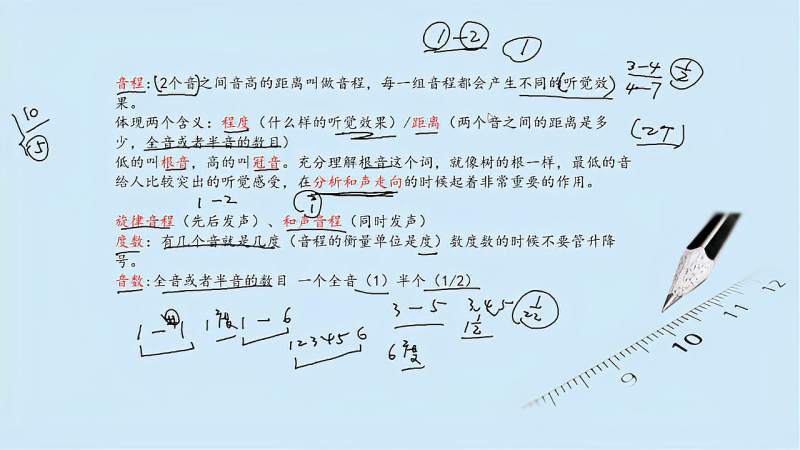 1-2
1
3-4 1/2
4-7
(2个)
10
5
音程:(2个音之间音高的距离叫做音程，每一组音程都会产生不同的(听觉效
果。
体现两个含义：程度（什么样的听觉效果）/距离（两个音之间的距离是多
少，全音或者半音的数目）
低的叫根音，高的叫冠音。充分理解根音这个词，就像树的根一样，最低的音
给人比较突出的听觉感受，在分析和声走向的时候起着非常重要的作用。
1-2
3
1
旋律音程（先后发声）、和声音程（同时发声）
度数：有几个音就是几度（音程的衡量单位是度）数度数的时候不要管升降
号。
音数:全音或者半音的数目 一个全音（1）半个（1/2）
1-1 1度 1-6 123456
3-5 345
6度
9 10 11 12